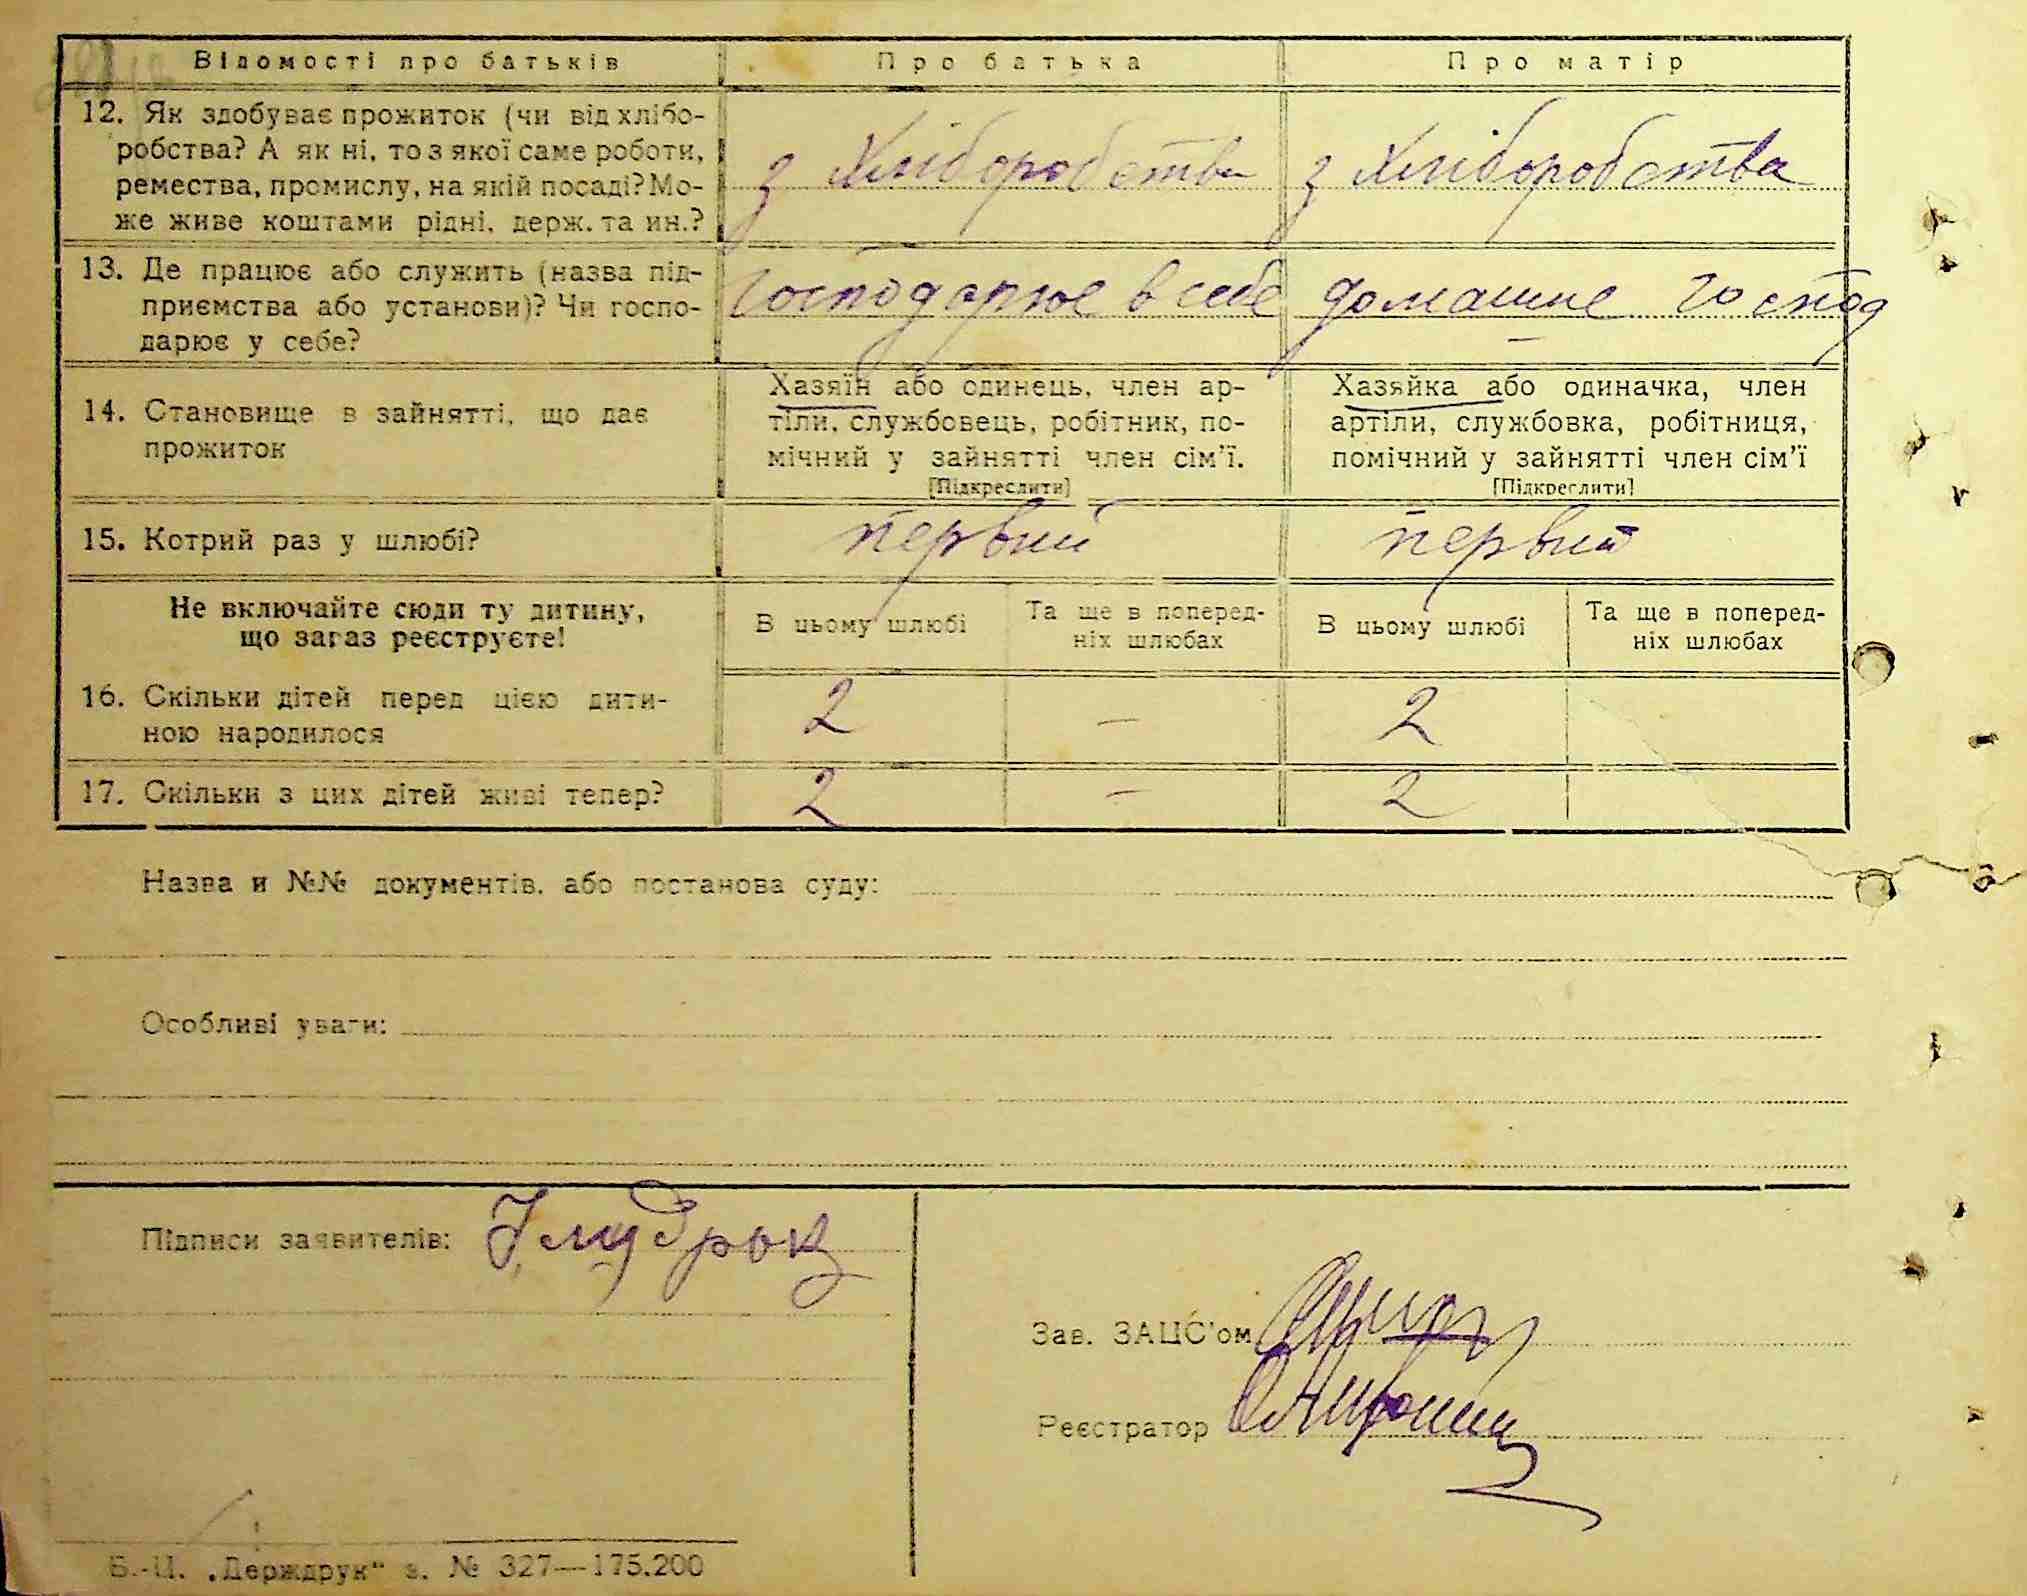 Відомості про батьків Про батька Про матір
12. Як здобуває прожиток (чи від хлібо-
робства? А як ні, то з якої саме роботи,
ремества, промислу, на якій посаді? Мо-
же живе коштами рідні, держ. та ин.?
з хліборобства з хліборобства
13. Де працює або служить (назва під-
приємства або установи)? Чи госпо-
дарює у себе?
господарює в себе домашнє господ
14. Становище в зайнятті, що дає
прожиток
Хазяїн або одинець, член ар-
тіли, службовець, робітник, по-
мічний у зайнятті член сім'ї.
[Підкреслити]
Хазяйка або одиначка, член
артіли, службовка, робітниця,
помічний у зайнятті член сім'ї
[Підкреслити]
15. Котрий раз у шлюбі? первий первий
Не включайте сюди ту дитину,
що зараз реєструєте!
В цьому шлюбі
Та ще в поперед-
ніх шлюбах
В цьому шлюбі
Та ще в поперед-
ніх шлюбах
16. Скільки дітей перед цією дити-
ною народилося
2 — 2
17. Скільки з цих дітей живі тепер? 2 — 2
Назва й №№ документів, або постанова суду:
Особливі уваги:
Підписи заявителів:
Зав. ЗАЦС'ом
Реєстратор
Б.-Ц. „Держдрук“ з. № 327—175.200